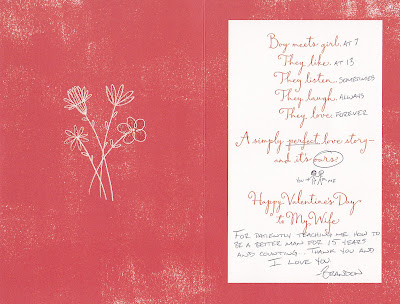 Boy meets girl. AT 7
They like. AT 13
They listen. SOMETIMES
They laugh. ALWAYS
They love. FOREVER
A simply perfect love story—
and it's ours!
YOU ME
Happy Valentine's Day
to My Wife
FOR PATIENTLY TEACHING ME HOW TO
BE A BETTER MAN FOR 15 YEARS
AND COUNTING. THANK YOU AND
I LOVE YOU
BRANDON